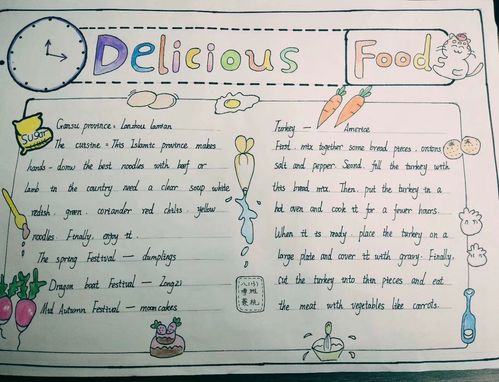 Delicious Food
SUGAR
Gansu province: Lanzhou lamian
The cuisine: This Islamic province makes
hands-down the best noodles with beef or
lamb in the country need a clear soup white
redish, green, coriander red chilis, yellow
noodles. Finally, enjoy it.
The spring Festival — dumplings
Dragon boat Festival — Zongzi
Mid Autumn Festival — mooncakes
Turkey — America
First, mix together some bread pieces, onions
salt and pepper. Sound, fill the turkey with
this bread mix. Then, put the turkey in a
hot oven and cook it for a fewer hours.
When it is ready, place the turkey on a
large plate and cover it with gravy. Finally
cut the turkey into thin pieces and eat
the meat with vegetables like carrots.